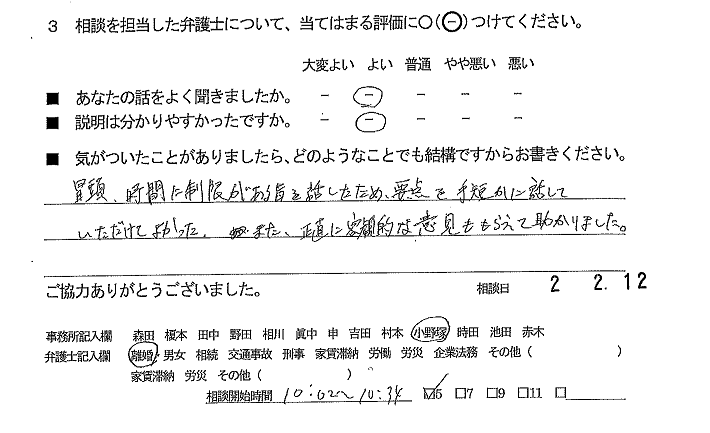 3 相談を担当した弁護士について、当てはまる評価に○(㊀)つけてください。
大変よい よい 普通 やや悪い 悪い
■ あなたの話をよく聞きましたか。 － － － － －
■ 説明は分かりやすかったですか。 － － － － －
■ 気がついたことがありましたら、どのようなことでも結構ですからお書きください。
冒頭、時間に制限がある旨を話したため、要点を手短かに話して
いただけてよかった。また、正直に客観的な意見ももらえて助かりました。
ご協力ありがとうございました。 相談日 2 2.12
事務所記入欄 森田 榎本 田中 野田 相川 眞中 申 吉田 村本 小野塚 時田 池田 赤木
弁護士記入欄 離婚・男女 相続 交通事故 刑事 家賃滞納 労働 労災 企業法務 その他( )
家賃滞納 労災 その他( )
相談開始時間 10:02～10:34 ☑5 □7 □9 □11 □